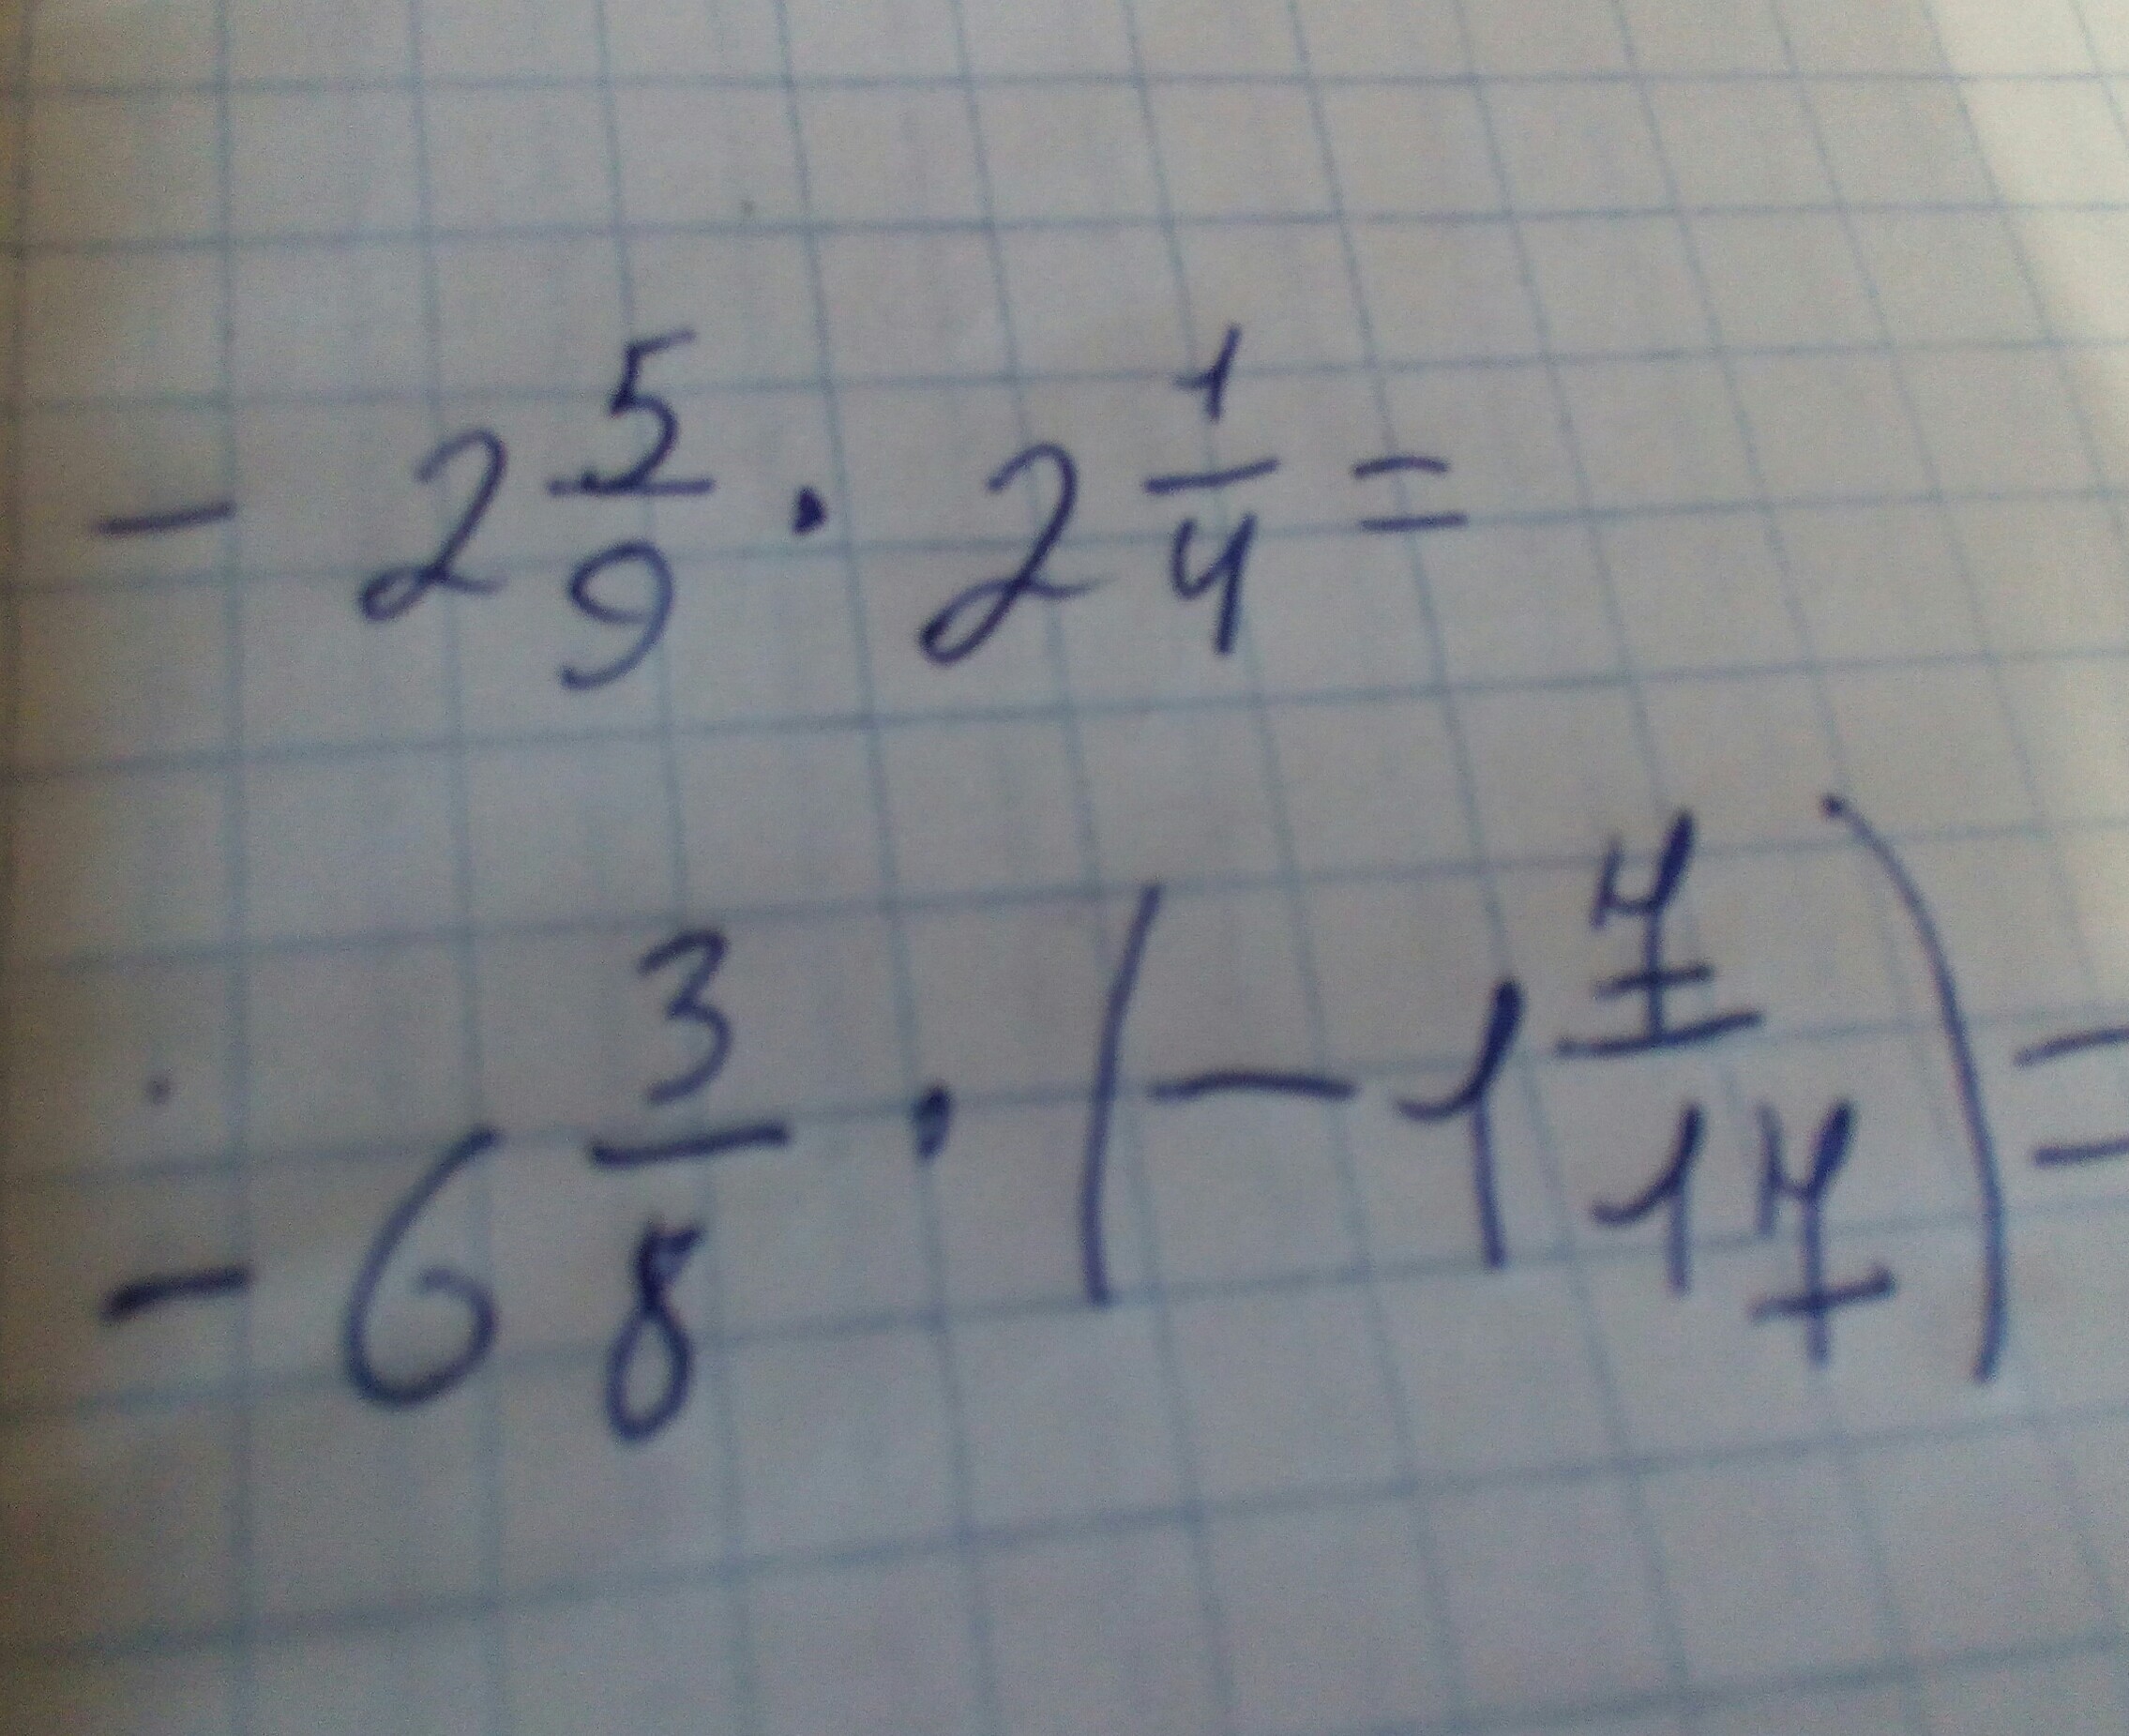 - 2 5/9 · 2 1/4 =
- 6 3/8 · (- 1 7/17) =